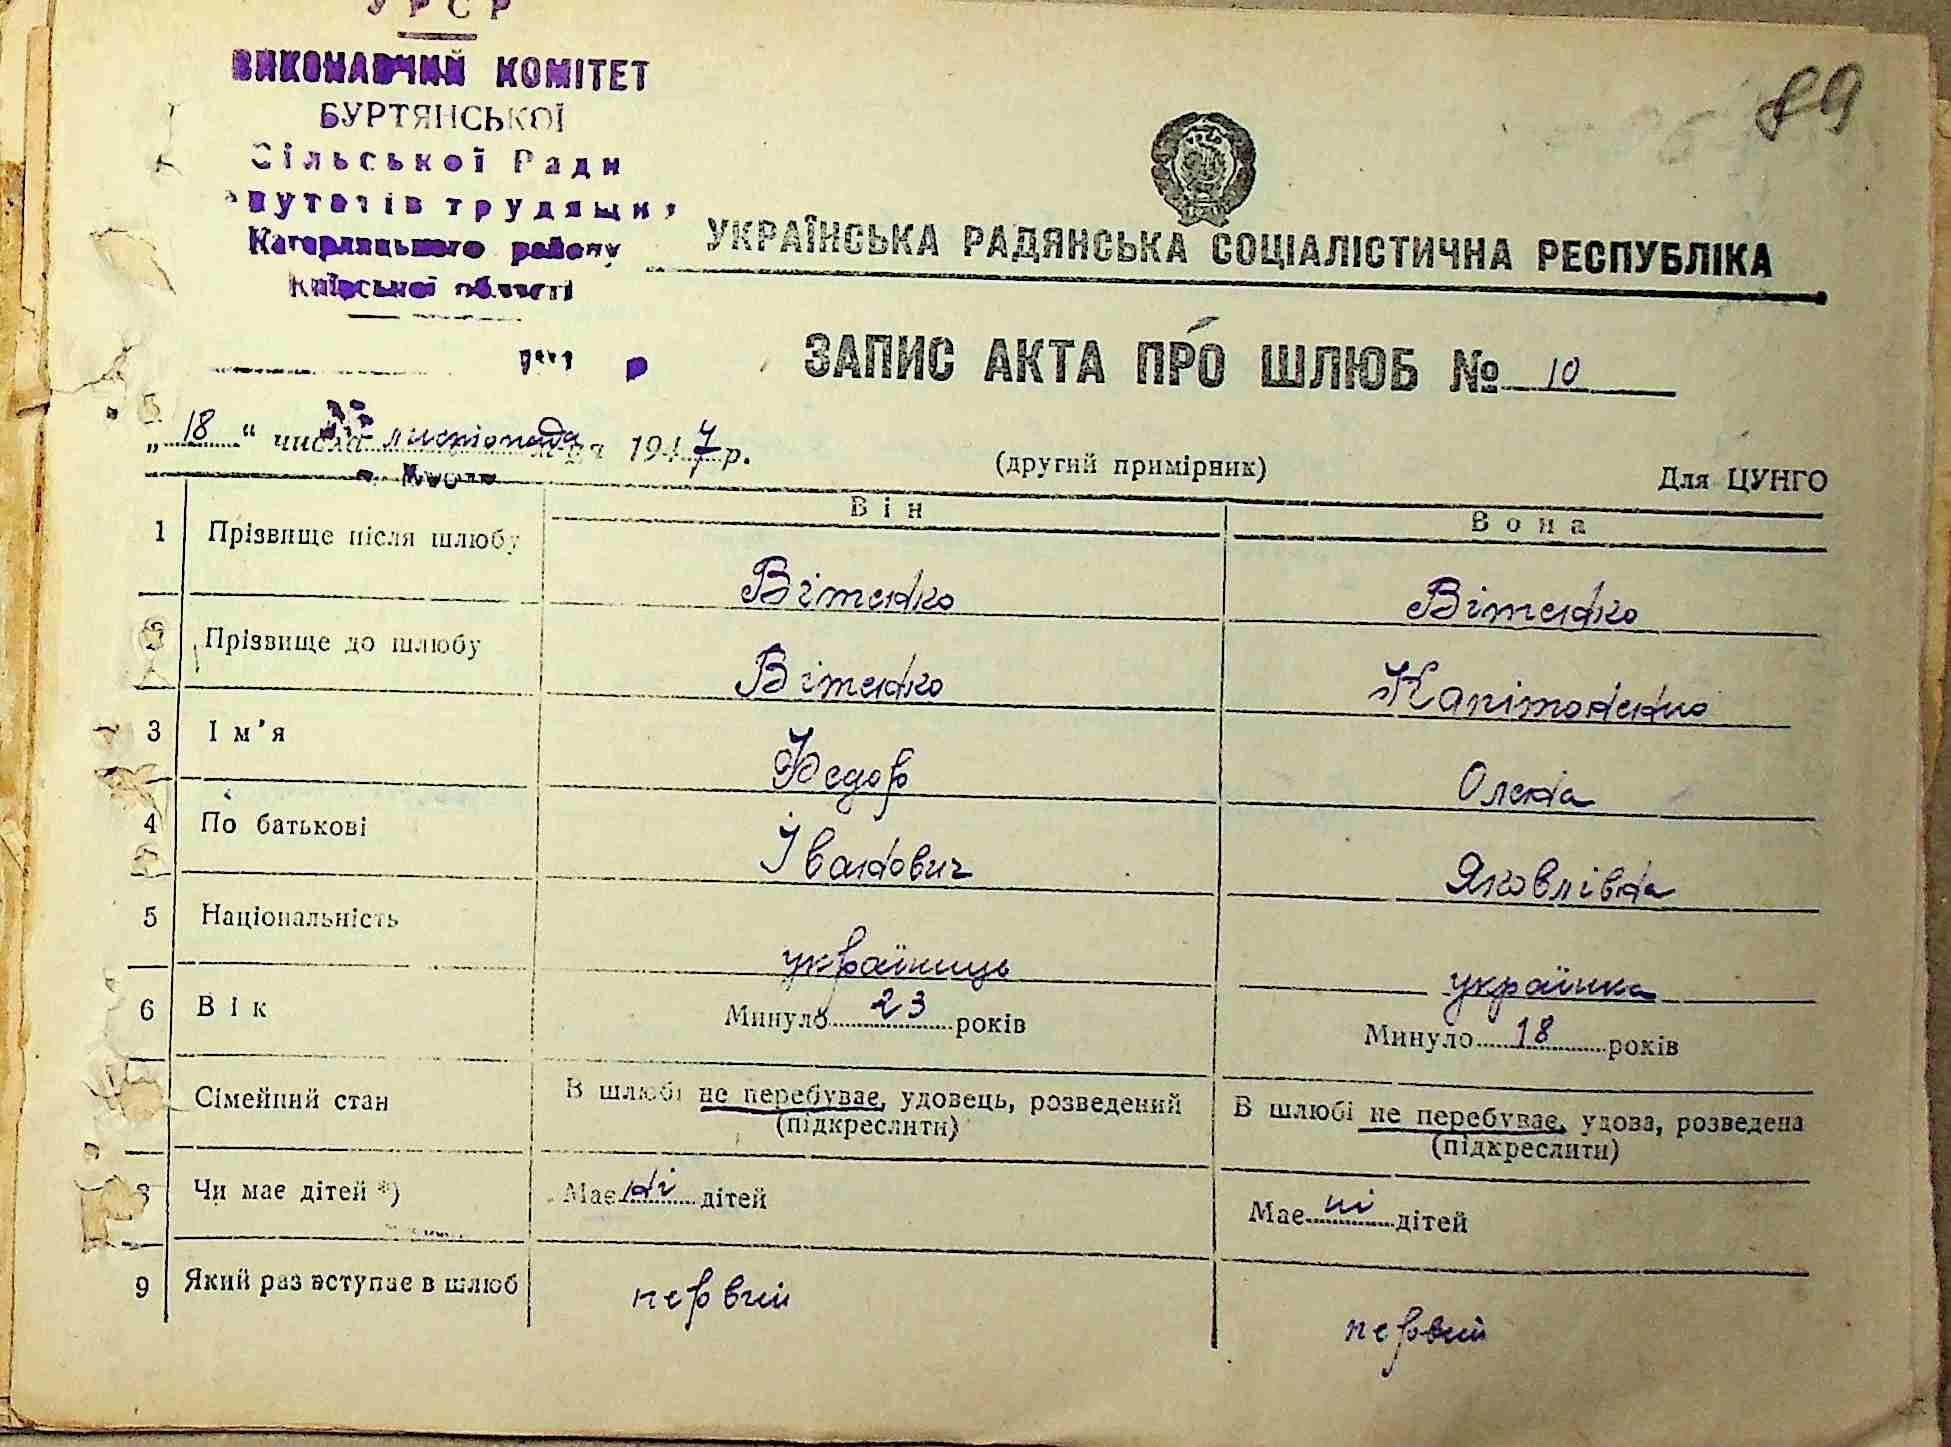 УРСР
ВИКОНАВЧИЙ КОМІТЕТ
БУРТЯНСЬКОЇ
Сільської Ради
путатів трудящи
Кагарлицького району
Київської області
89
УКРАЇНСЬКА РАДЯНСЬКА СОЦІАЛІСТИЧНА РЕСПУБЛІКА
ЗАПИС АКТА ПРО ШЛЮБ № 10
„18“ числа листопада м-ця 1947 р.
(другий примірник)
Для ЦУНГО
Він
Вона
1 Прізвище після шлюбу Вітенко Вітенко
2 Прізвище до шлюбу Вітенко Капітоненко
3 Ім'я Федор Олена
4 По батькові Іванович Яковлівна
5 Національність українець українка
6 Вік Минуло 23 років Минуло 18 років
Сімейний стан В шлюбі не перебуває, удовець, розведений (підкреслити) В шлюбі не перебуває, удова, розведена (підкреслити)
8 Чи має дітей *) Має ні дітей Має ні дітей
9 Який раз вступає в шлюб первий первий